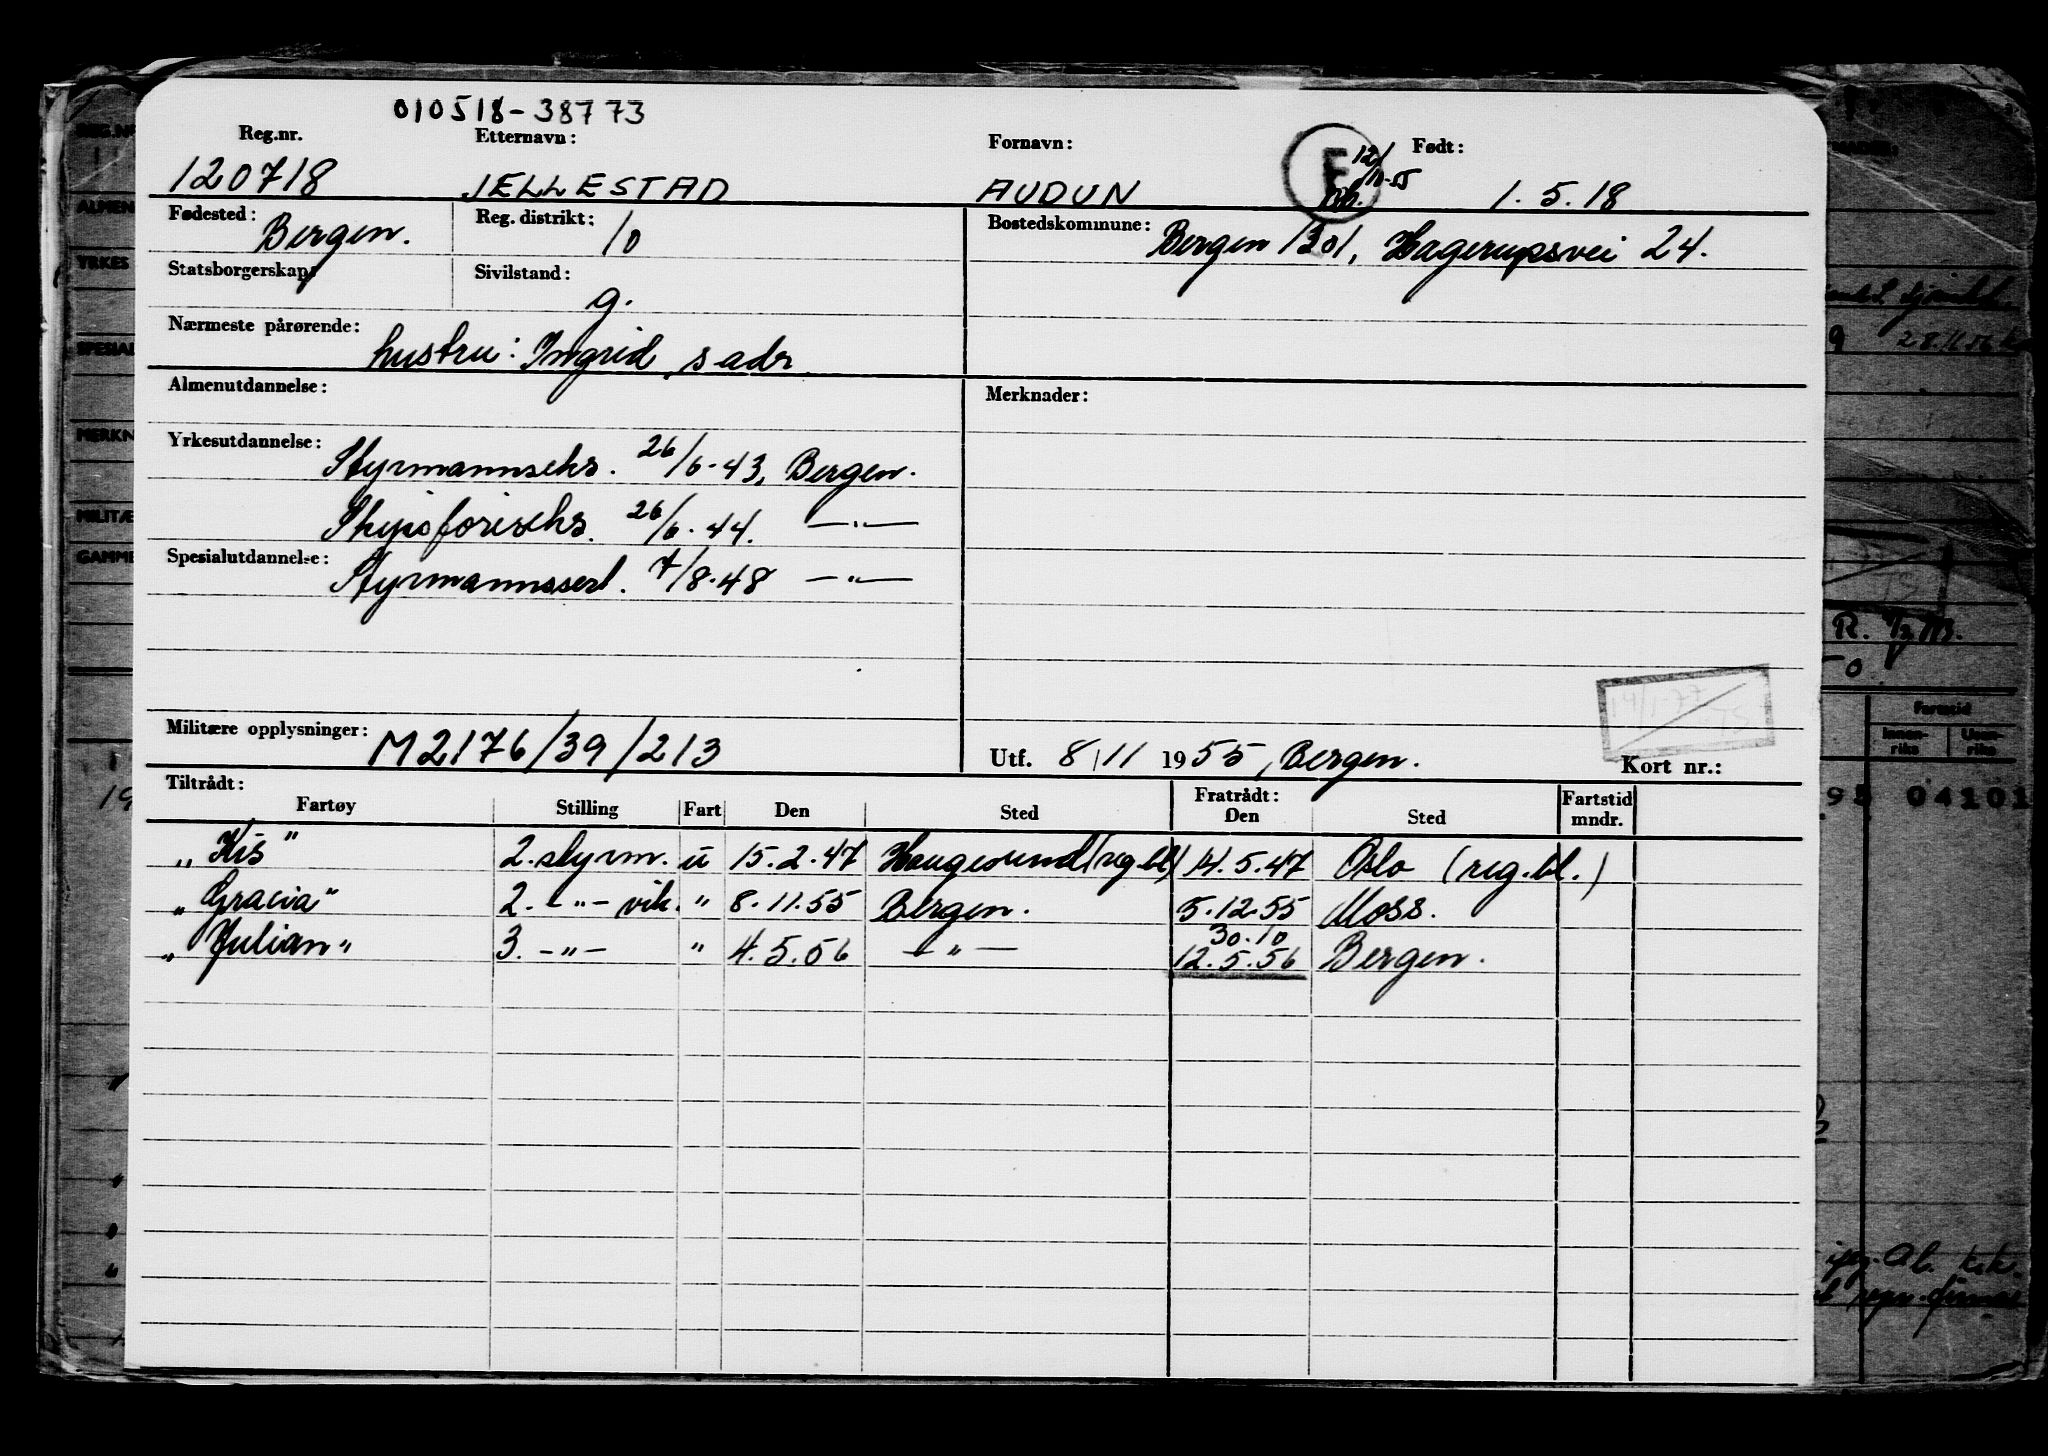 010518-38773
Reg.nr. Etternavn: Fornavn: Født:
120718 JELLESTAD AUDUN F 12/10-55 1.5.18
Fødested: Bergen. Reg. distrikt: 10 Bostedskommune: Bergen 1301, Hagerupsvei 24.
Statsborgerskap: Sivilstand: g.
Nærmeste pårørende: hustru: Ingrid, s adr.
Almenutdannelse: Merknader:
Yrkesutdannelse: Styrmannseks. 26/6-43, Bergen.
Skipsføriseks. 26/6-44. —"—
Spesialutdannelse: Styrmannssert. 7/8-48 —"—
14/1-77
Militære opplysninger: M2176/39/213 Utf. 8/11 1955, Bergen. Kort nr.:
Tiltrådt: Fratrådt: Fartstid
Fartøy Stilling Fart Den Sted Den Sted mndr.
"Kis" 2. styrm. u 15.2.47 Haugesund (reg.bl) 14.5.47 Oslo (reg.bl.)
"Gracia" 2. -"- vik. " 8.11.55 Bergen. 5.12.55 Moss.
30.10
"Julian" 3. -"- " 4.5.56 —"— 12.5.56 Bergen.
REG.NR
ALMEN
YRKES
SPESIAL
MERKN
MILITÆ
GAMME
28.11.56
R.
Fartstid
Innen-riks Uten-riks
04101